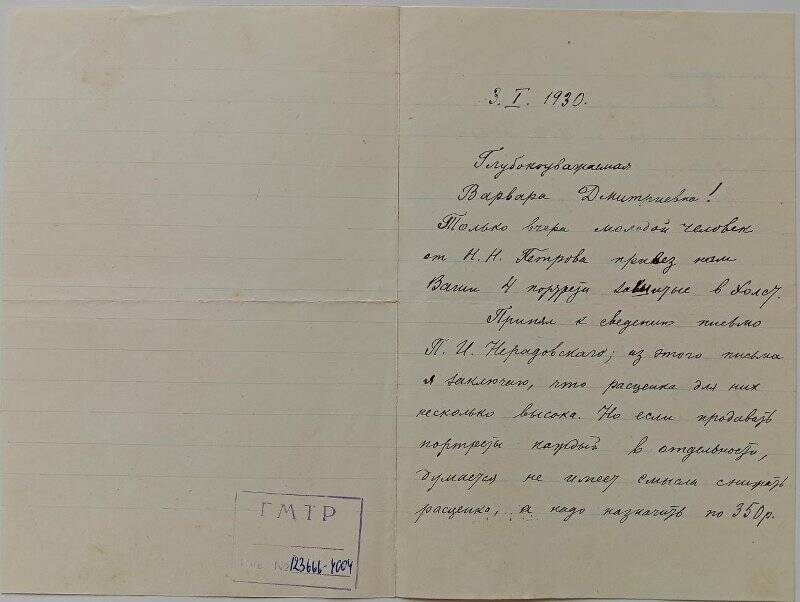 3. I. 1930.
Глубокоуважаемая
Варвара Дмитриевна!
Только вчера молодой человек
от Н. Н. Петрова привез нам
Ваши 4 портрета зашитые в холст.
Принял к сведению письмо
П. И. Нерадовскаго; из этого письма
я заключаю, что расценка для них
несколько высока. Но если продавать
портреты каждый в отдельности,
думается не имеет смысла снижать
расценко, а надо назначить по 350 р.
ГМТР
Инв. № 123666-4004